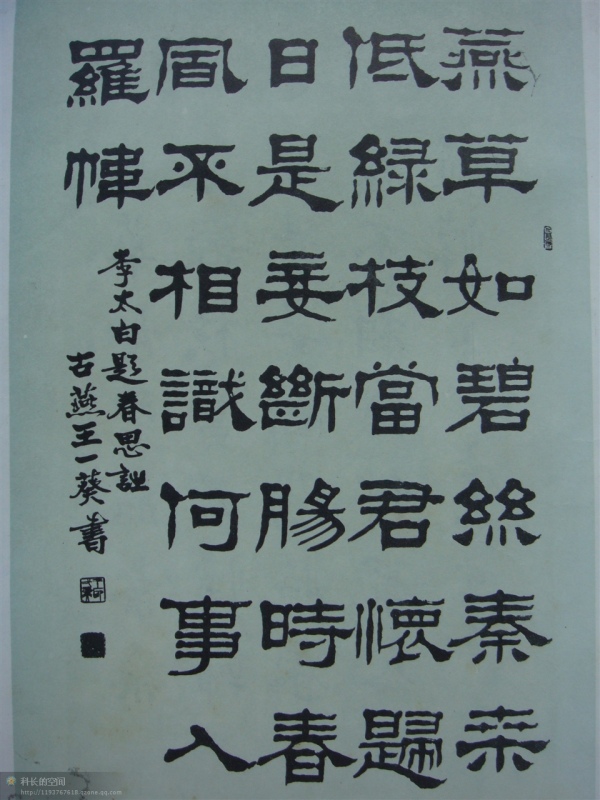 燕草如碧絲秦桒
低緑枝當君懷歸
日是妾斷腸時春
風不相識何事入
羅幃
李太白題春思詩
古燕王一葵書
科长的空间
http://1193767618.qzone.qq.com